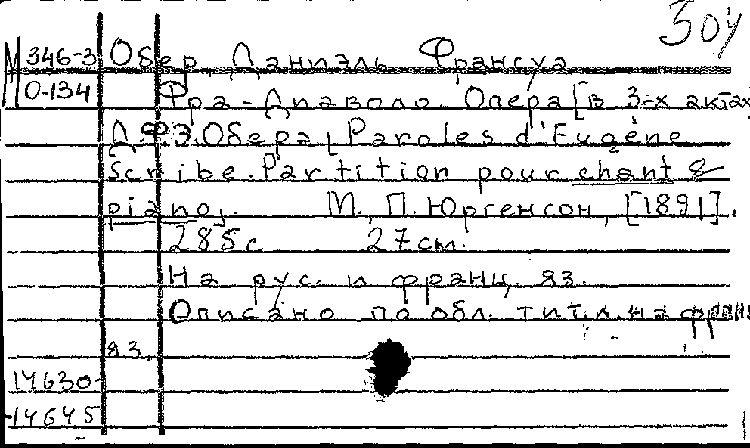 304
М 346-3 Обер, Даниэль Франсуа
О-134 Фра-Диаволо. Опера [в 3-х актах
Д.Ф.Э. Обера, Paroles d'Eugène
Scribe. Partition pour chant &
piano,. М., П. Юргенсон, [1891].
285с 27cm.
На рус. и франц. яз.
Описано по обл. тит. л. на франц
яз.
14630-
-14645